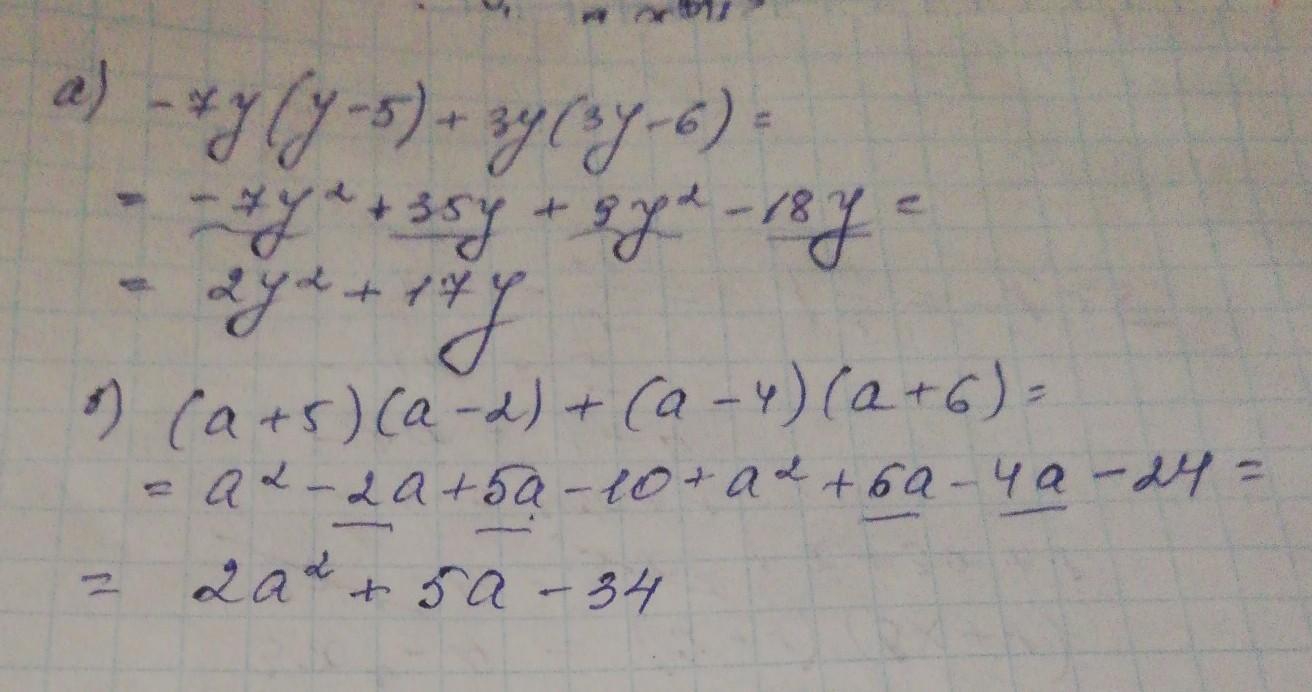 а) -7y(y-5)+3y(3y-6)=
= -7y²+35y+9y²-18y=
= 2y²+17y
б) (a+5)(a-2)+(a-4)(a+6)=
= a²-2a+5a-10+a²+6a-4a-24=
= 2a²+5a-34